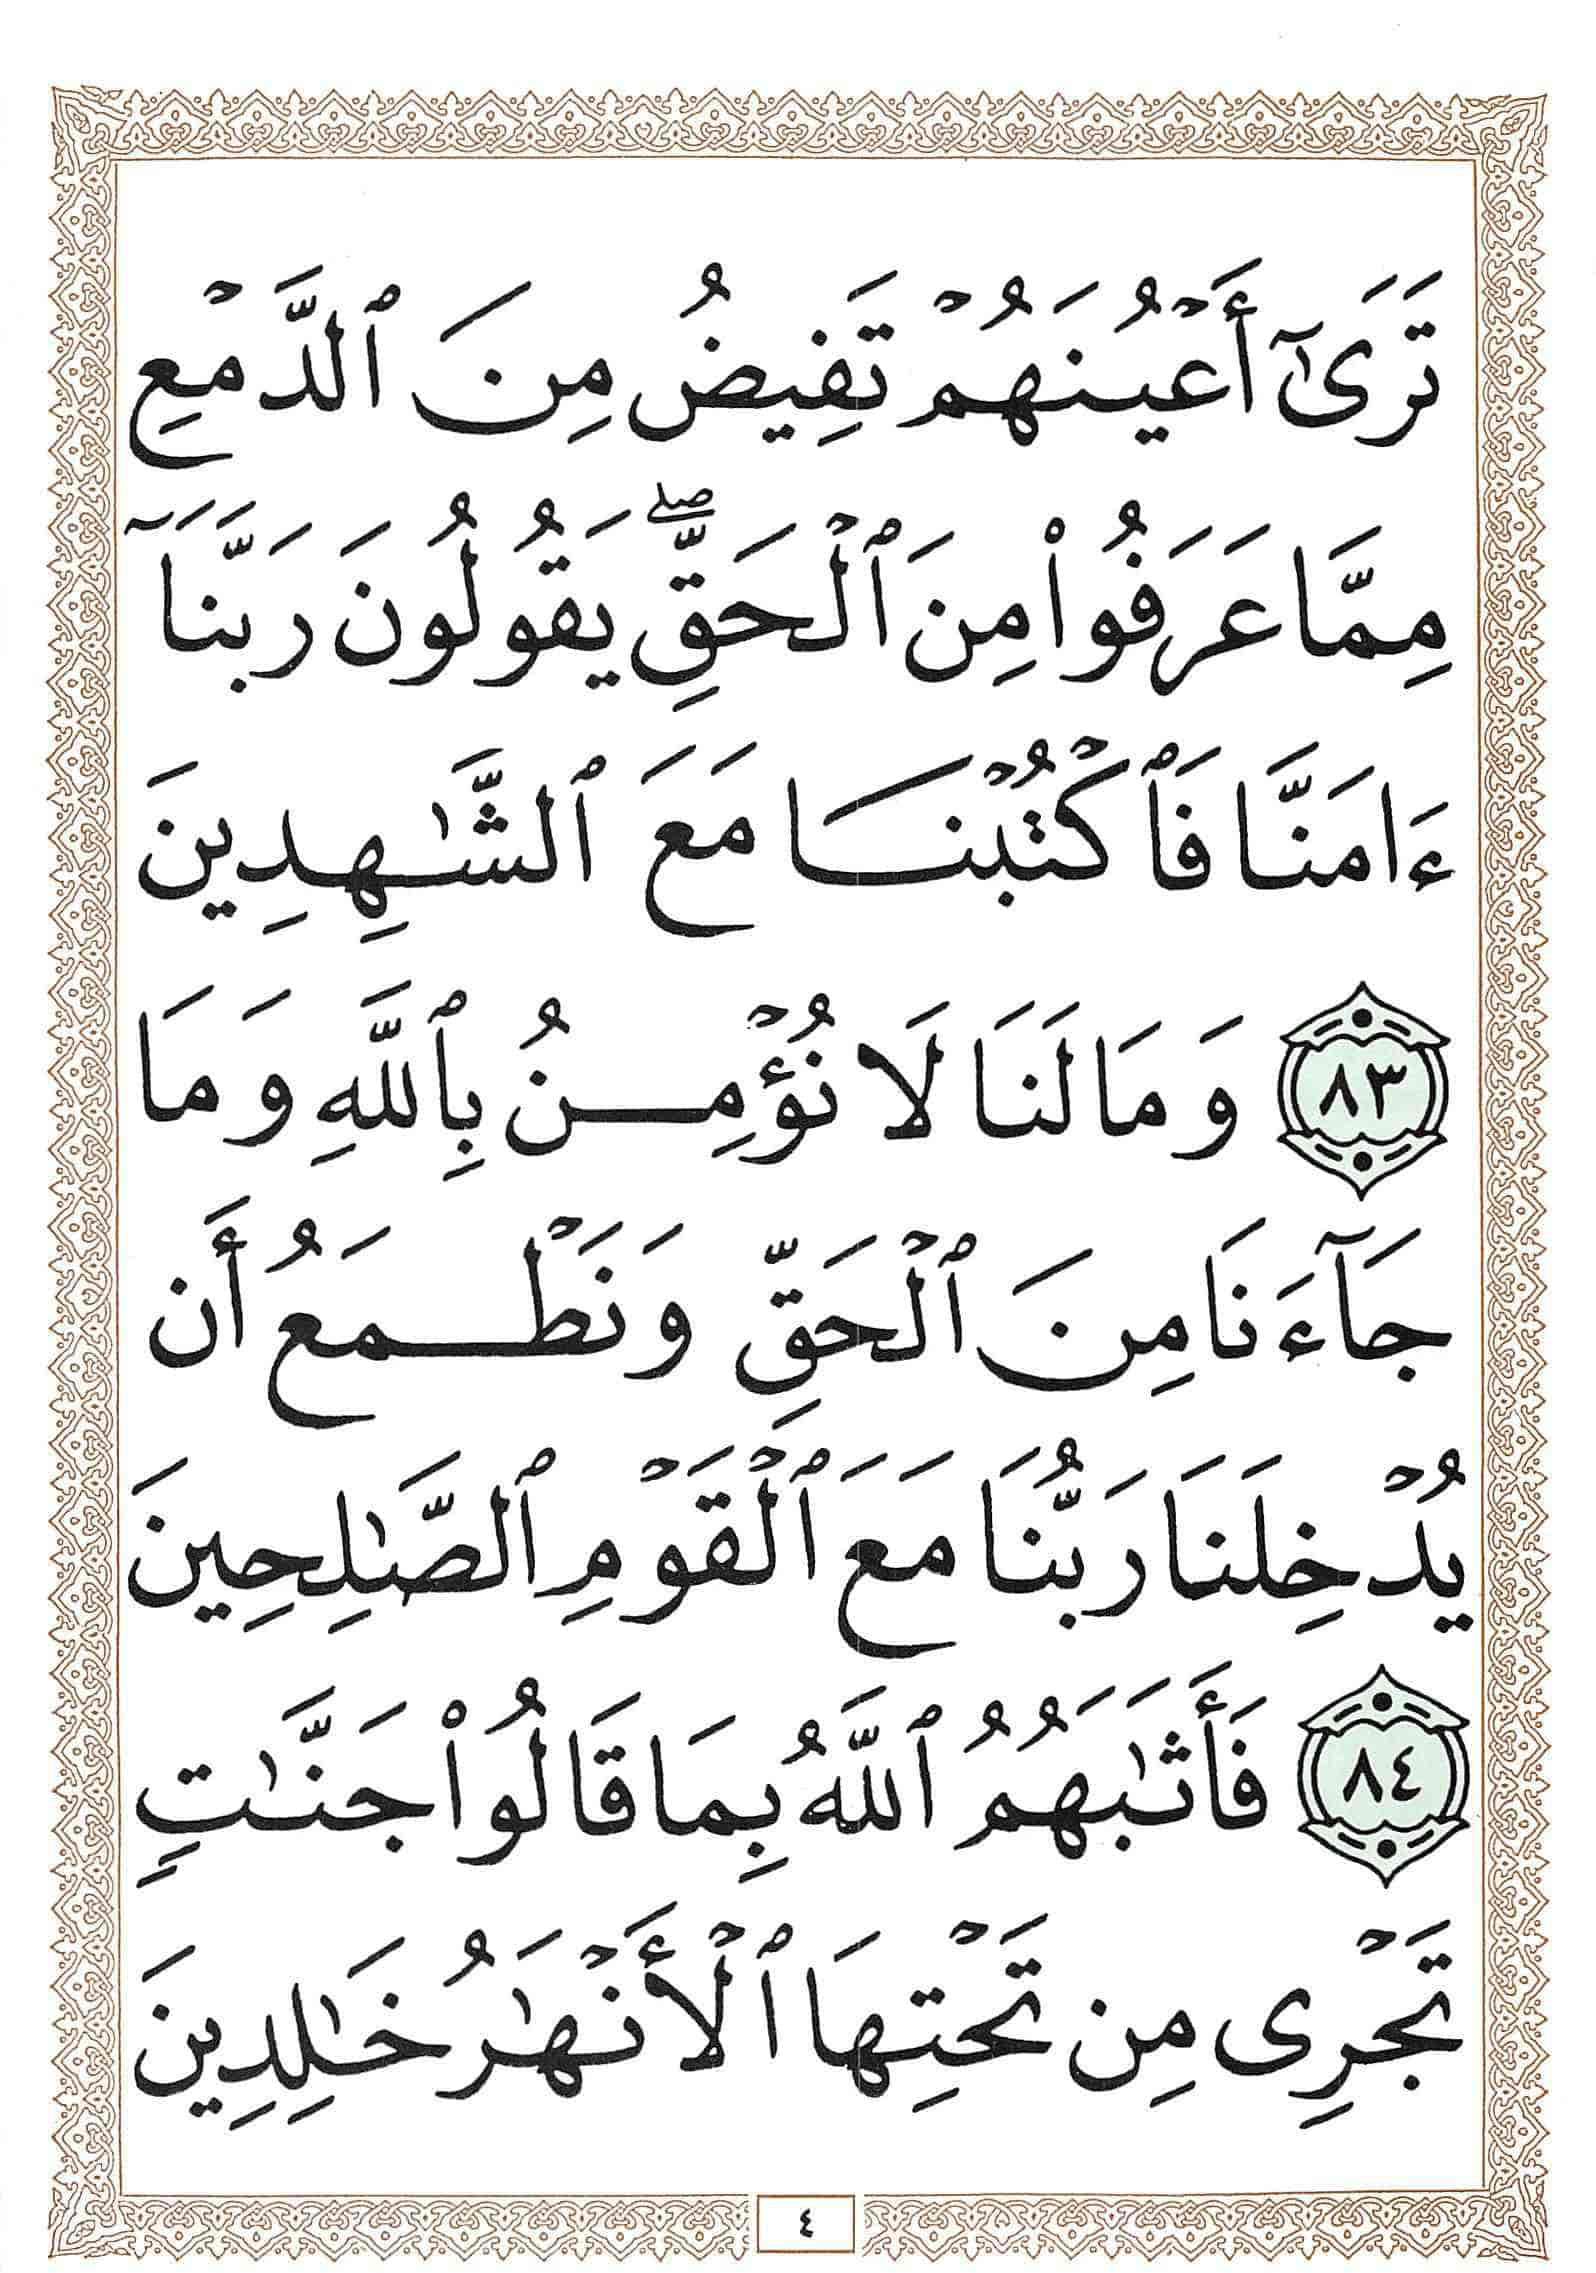 تَرَىٰٓ أَعْيُنَهُمْ تَفِيضُ مِنَ ٱلدَّمْعِ
مِمَّا عَرَفُوا۟ مِنَ ٱلْحَقِّ ۖ يَقُولُونَ رَبَّنَآ
ءَامَنَّا فَٱكْتُبْنَا مَعَ ٱلشَّـٰهِدِينَ
٨٣ وَمَا لَنَا لَا نُؤْمِنُ بِٱللَّهِ وَمَا
جَآءَنَا مِنَ ٱلْحَقِّ وَنَطْمَعُ أَن
يُدْخِلَنَا رَبُّنَا مَعَ ٱلْقَوْمِ ٱلصَّـٰلِحِينَ
٨٤ فَأَثَـٰبَهُمُ ٱللَّهُ بِمَا قَالُوا۟ جَنَّـٰتٍ
تَجْرِى مِن تَحْتِهَا ٱلْأَنْهَـٰرُ خَـٰلِدِينَ
٤